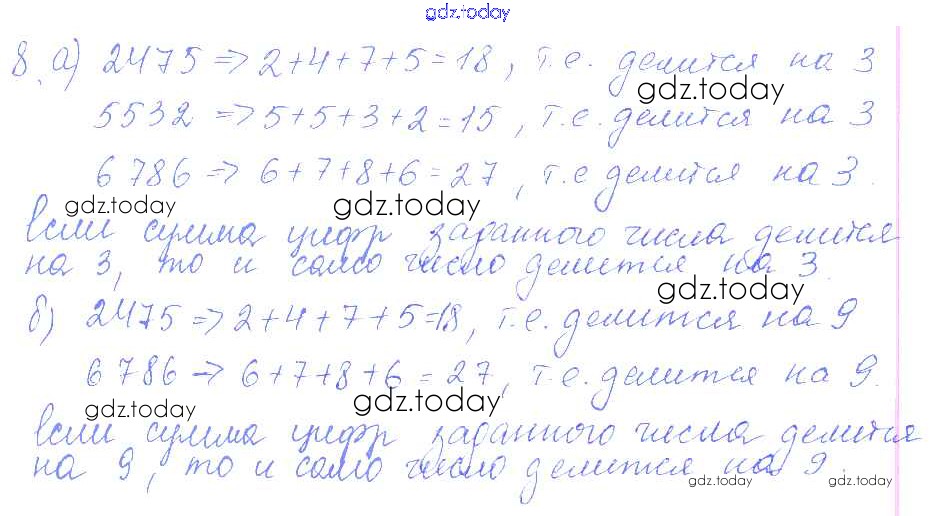 gdz.today
8. а) 2475 => 2+4+7+5=18, т.е. делится на 3
gdz.today
5532 => 5+5+3+2=15, т.е. делится на 3
6786 => 6+7+8+6=27, т.е делится на 3.
gdz.today gdz.today
Если сумма цифр заданного числа делится
на 3, то и само число делится на 3.
gdz.today
б) 2475 => 2+4+7+5=18, т.е. делится на 9
6786 -> 6+7+8+6=27, т.е. делится на 9.
gdz.today gdz.today
Если сумма цифр заданного числа делится
на 9, то и само число делится на 9.
gdz.today gdz.today